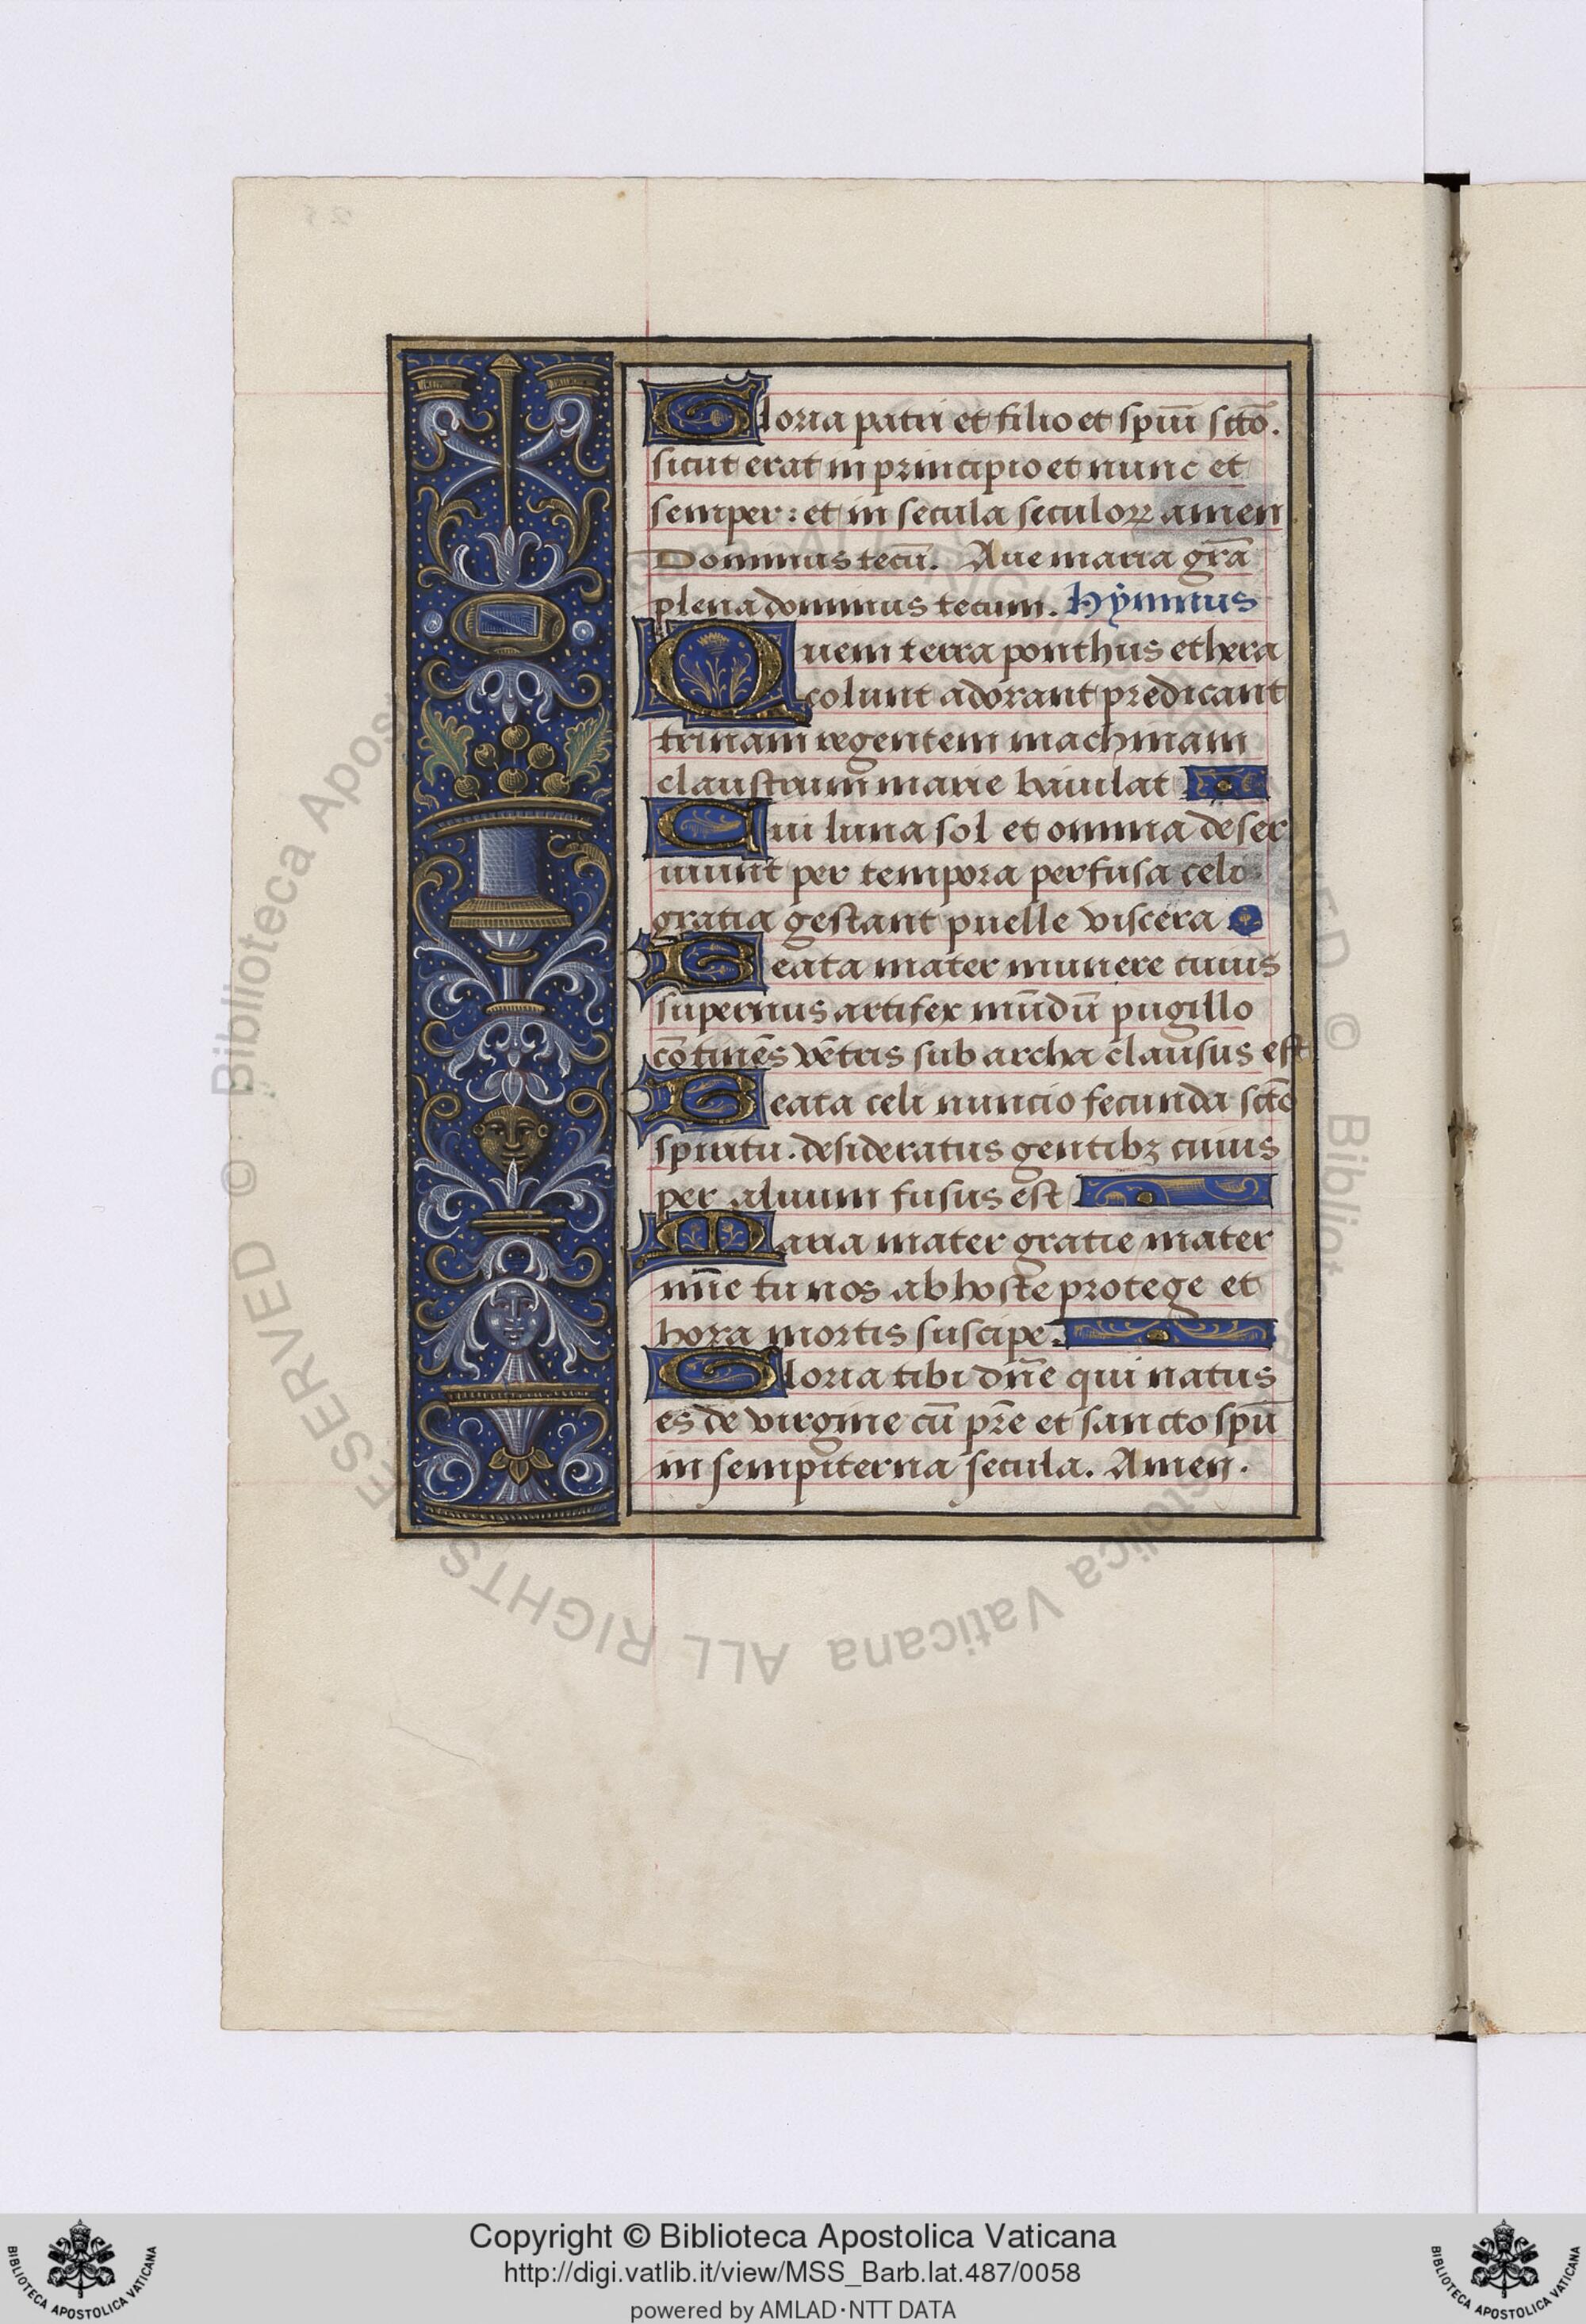 Gloria patri et filio et spũi sctõ.
sicut erat in principio et nunc et
semper: et in secula seculoꝝ amen
Dominus tecũ. Aue maria grã
plena dominus tecum. Hẏmnus
Quem terra ponthus ethera
colunt adorant predicant
trinam regentem machinam
claustrum marie baiulat
Cui luna sol et omnia deser
uiunt per tempora perfusa celi
gratia gestant puelle viscera
Beata mater munere cuius
supernus artifex mũdũ pugillo
cõtinẽs vẽtris sub archa clausus est
Beata celi nuncio fecunda sctõ
spiritu. desideratus gentibꝫ cuius
per aluum fusus est
Maria mater gratie mater
mĩe tu nos ab hoste protege et
hora mortis suscipe.
Gloria tibi dñe qui natus
es de virgine cũ pr̃e et sancto spũ
in sempiterna secula. Amen.
© Biblioteca Apostolica Vaticana ALL RIGHTS RESERVED
Copyright © Biblioteca Apostolica Vaticana
http://digi.vatlib.it/view/MSS_Barb.lat.487/0058
powered by AMLAD·NTT DATA
BIBLIOTECA APOSTOLICA VATICANA
BIBLIOTECA APOSTOLICA VATICANA